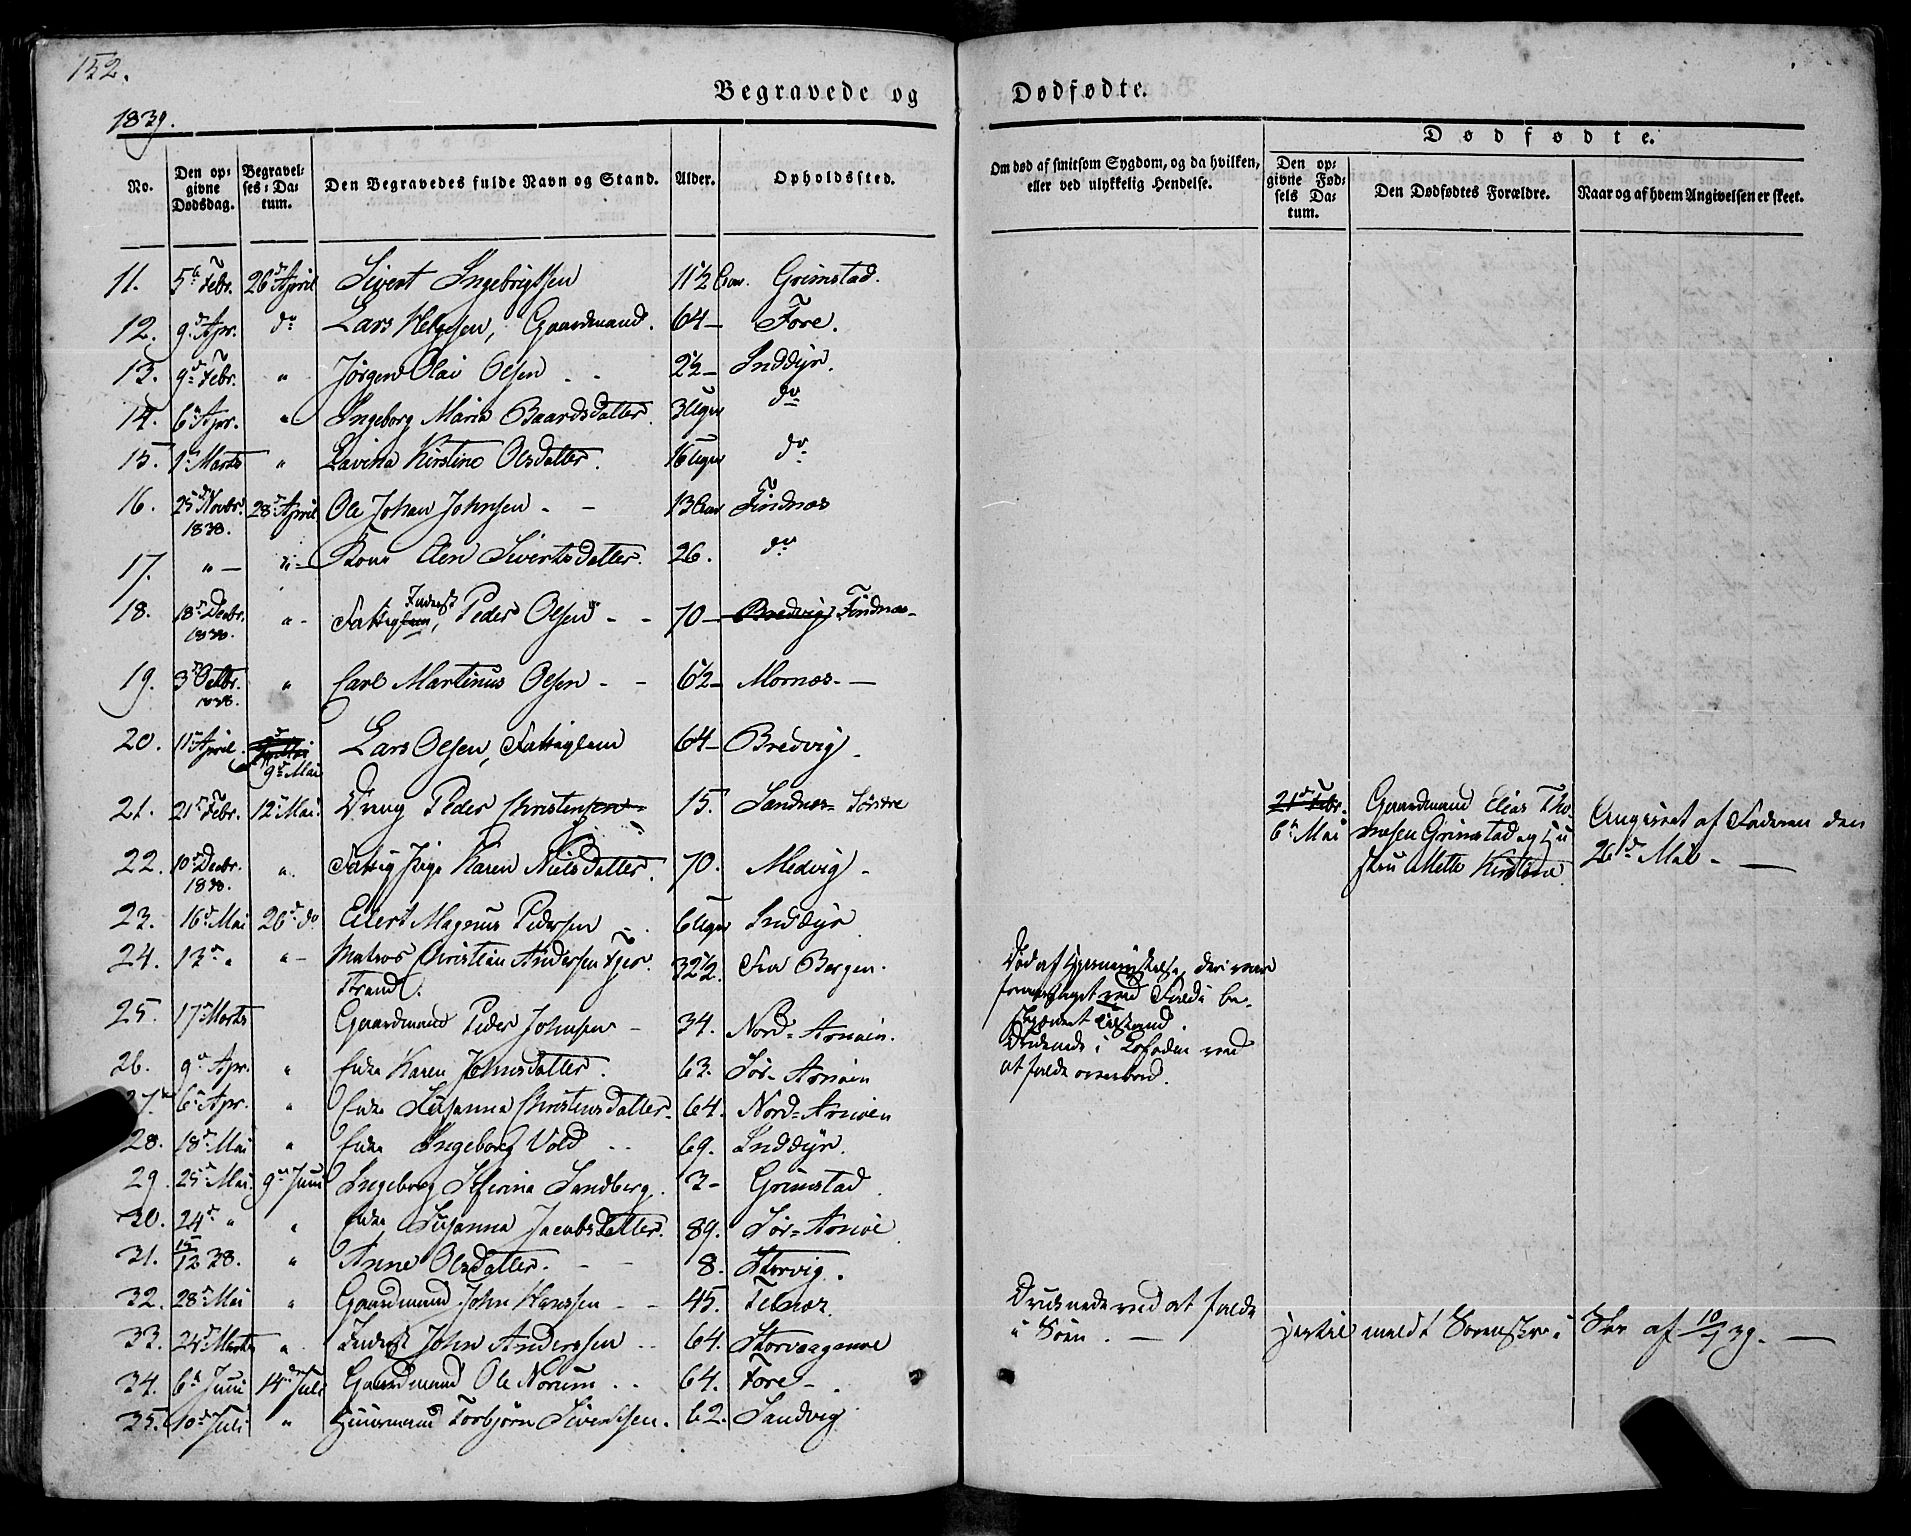 152.
Begravede og Dødfødte.
1839.
No.
Den opgivne Dødsdag.
Begravelses-Datum.
Den Begravedes fulde Navn og Stand.
Alder.
Opholdssted.
Om død af smitsom Sygdom, og da hvilken, eller ved ulykkelig Hendelse.
Dødfødte.
Den opgivne Fødsels Datum.
Den Dødfødtes Forældre.
Naar og af hvem Angivelsen er skeet.
11. 5 Febr. 26 April Sivert Ingebrigtsen 11½ Grimstad.
12. 9 Apr. do Lars Helgesen, Gaardmand. 64 Fore.
13. 9 Febr. " Jørgen Olai Olsen 2½ Inddyr.
14. 6 Apr. " Ingeborg Maria Baardsdatter. 3 Uger do
15. 1 Marts " Lavina Kirstine Olsdatter. 16 Uger do
16. 25 Novbr. 1838. 28 April Ole Johan Johnsen 13 Findnæs
17. " " Kone Elen Sivertsdatter. 26. do
18. 18 Decbr. 1838. " Fattig Inderst Peder Olsen 70 Bredvig Findnæs
19. 3 Octbr. 1838. " Carl Martinus Olsen 6½ Mornæs
20. 11 April 9 Mai Lars Olsen, Fattiglem 64 Bredvig
21. 21 Febr. 12 Mai Dreng Peder Christensen 15. Sandnæs
21 Febr. 6 Mai
Gaardmand Elias Thomesen Grimstad og Hustru Mette Kirstine
Angivet af Faderen den 26 Mai
22. 10 Decbr. 1838. " Fattig Pige Karen Nielsdatter. 70. Medvig
23. 16 Mai 20 do Eilert Magnus Pedersen 6 Uger Inddyr
24. 13 " " Matros Christian Andersen strand. 32½ Fra Bergen.
25. 17 Marts Gaardmand Peder Johnsen 34. Nord-Arnøen.
Død af
ved Fald i beskjænket Tilstand.
Druknede i Lofoden ved at falde overbord.
26. 9 Apr. " Enke Karen Johnsdatter. 63. Sør-Arnøen
27. 6 Apr. " Enke Susanna Christensdatter 64. Nord-Arnøen
28. 18 Mai " Enke Ingeborg Vold 69. Inddyr.
29. 25 Mai 9 Juni Ingeborg Sandberg. 3 Grimstad
30. 24 " " Enke Susanna Jacobsdatter. 89. Sør-Arnøe
31. 15/12 38. " Anne Olsdatter. 8. Storvig.
32. 28 Mai " Gaardmand John Hanssen 45.
Druknede ved at falde i Søen.
33. 24 Marts " Inderst John Anderssen 64.
34. 6 Juni 14 Juli Gaardmand Ole Norum 64. Fore
35. 10 Juli " Huusmand Torbjørn Sivertsen. 62. Sandvig
af 10/7 39.